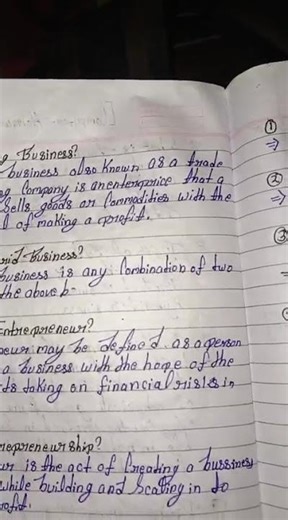 Business?
business also known as a trade
Company is an enterprice that a
Sells goods or Commodities with the
of making a cprofit.
Business?
business is any Combination of two
the above b-
Entrepreneur?
may be defined as a person
a business with the hope of the
taking on financial risks in
repreneurship?
is the act of Creating a bussiness
while building and Scaling in to
①
⇒
②
⇒